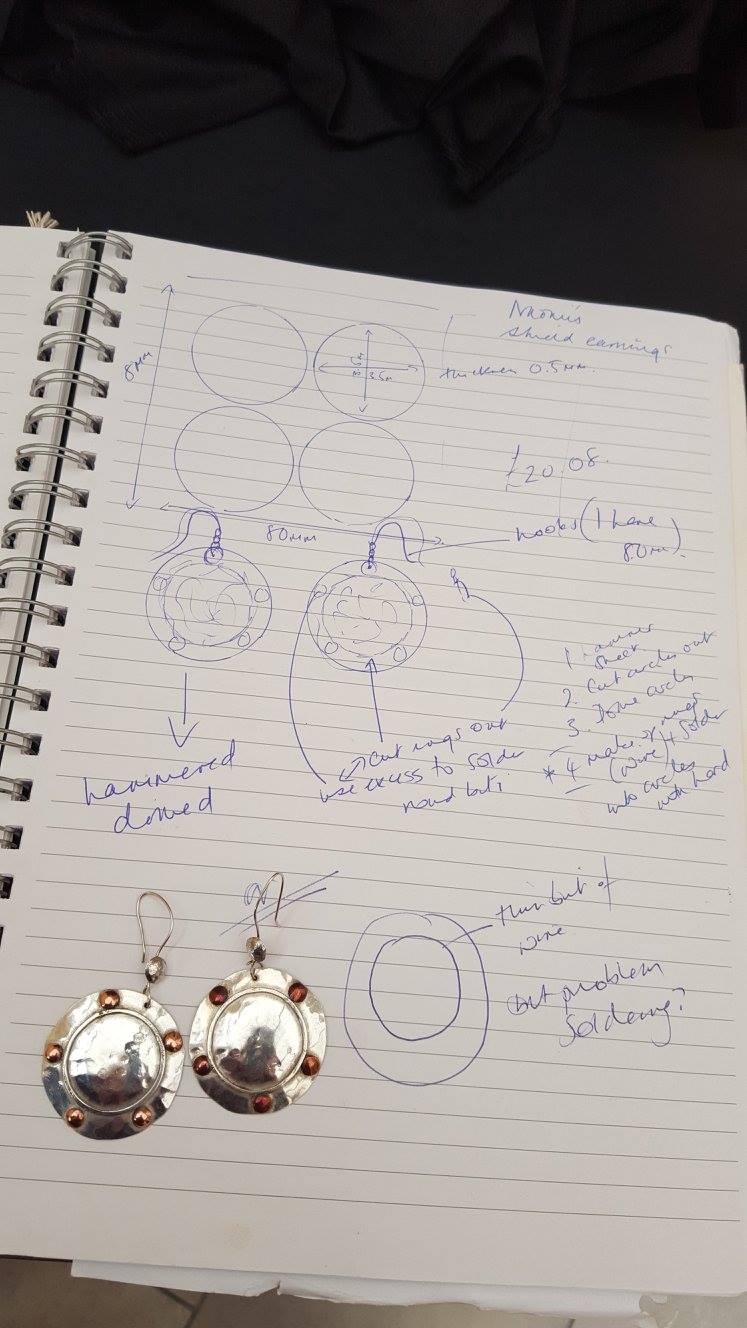 shield earrings
thickness 0.5mm.
8mm
£20.08.
80mm
hooks (I have
80m).
1. Hammer
sheet.
2. Cut circles out
3. Dome circles
* 4 make rings
(wire) + solder
into circles
with hard
hammered
domed
cut rings out
use excess to solder
round
thin bit of
wire
but problem
soldering?